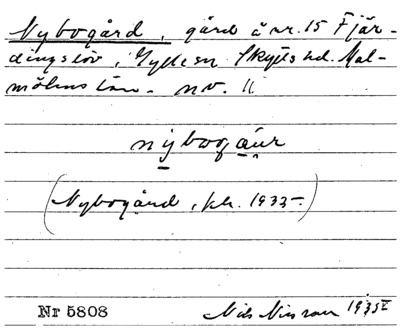 Nybogård, gård å nr. 15 Fjär-
dingslöv, Gylle sn Skytts hd. Mal-
möhus län. nv. 11
nybogaúr
(Nybogård, kh. 1933.)
Nr 5808
Nils Nilsson 1935